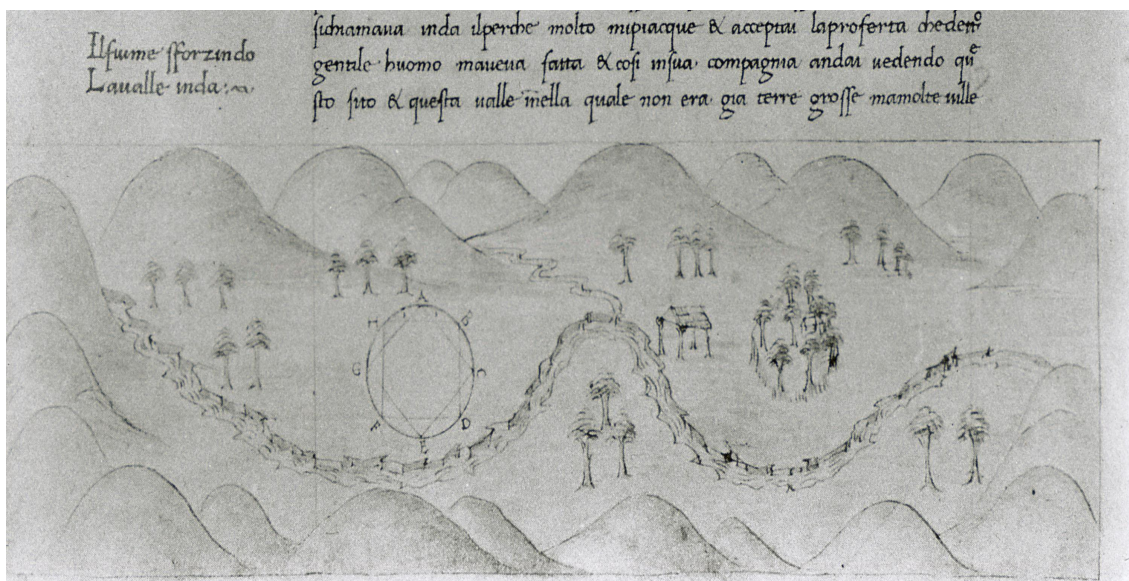 Ilfiume sforzindo
Laualle inda:~
sichiamaua inda ilperche molto mipiacque & acceptai laproferta chedettº
gentile huomo maueua fatta & cosi insua compagnia andai uedendo que
sto sito & questa ualle inella quale non era gia terre grosse mamolte uille
A
H B
G C
F D
E